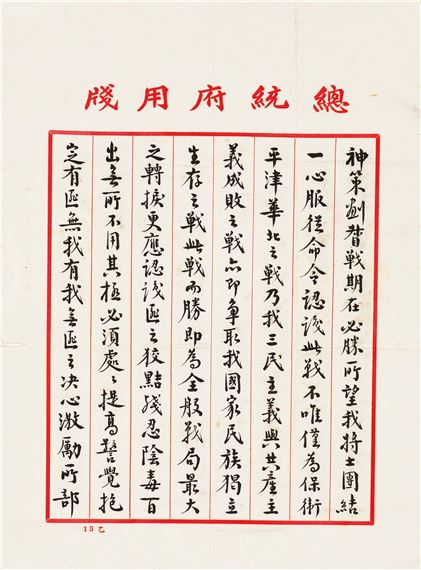 總統府用牋
神策劃督戰期在必勝所望我將士團結
一心服從命令認識此戰不唯僅為保衛
平津華北之戰乃我三民主義與共產主
義成敗之戰亦即爭取我國家民族獨立
生存之戰此戰而勝即為全般戰局最大
之轉捩更應認識匪之狡黠殘忍陰毒百
出無所不用其極必須處々提高警覺抱
定有匪無我有我無匪之决心激勵所部
15乙